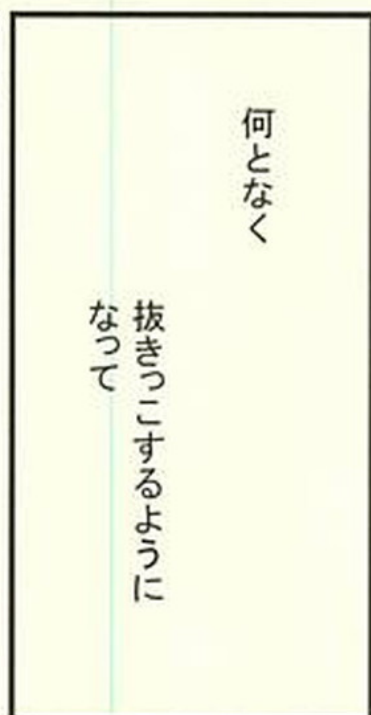 何となく
抜きっこするように
なって